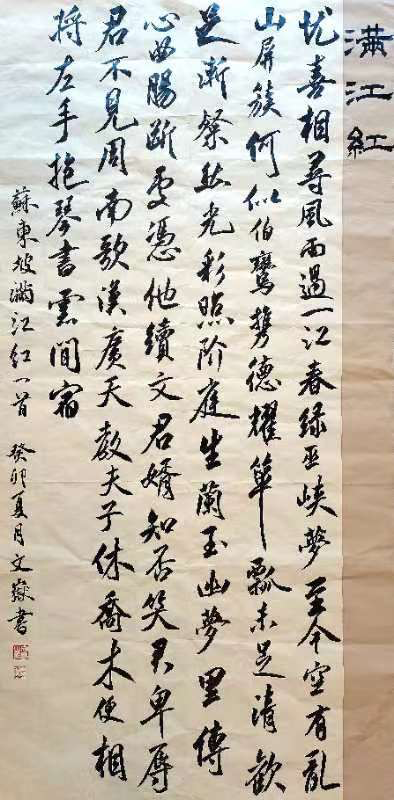 滿江紅
忧喜相尋風雨過一江春緑巫峽夢至今空有亂
山屏簇何似伯鸞携德耀箪瓢未足清歡
足漸粲然光彩照阶庭生蘭玉幽夢里傳
心曲腸斷處憑他續文君婿知否笑君卑辱
君不見周南歌漢廣天教夫子休喬木便相
将左手抱琴書雲間宿
蘇東坡滿江紅一首 癸卯夏月文嶽書